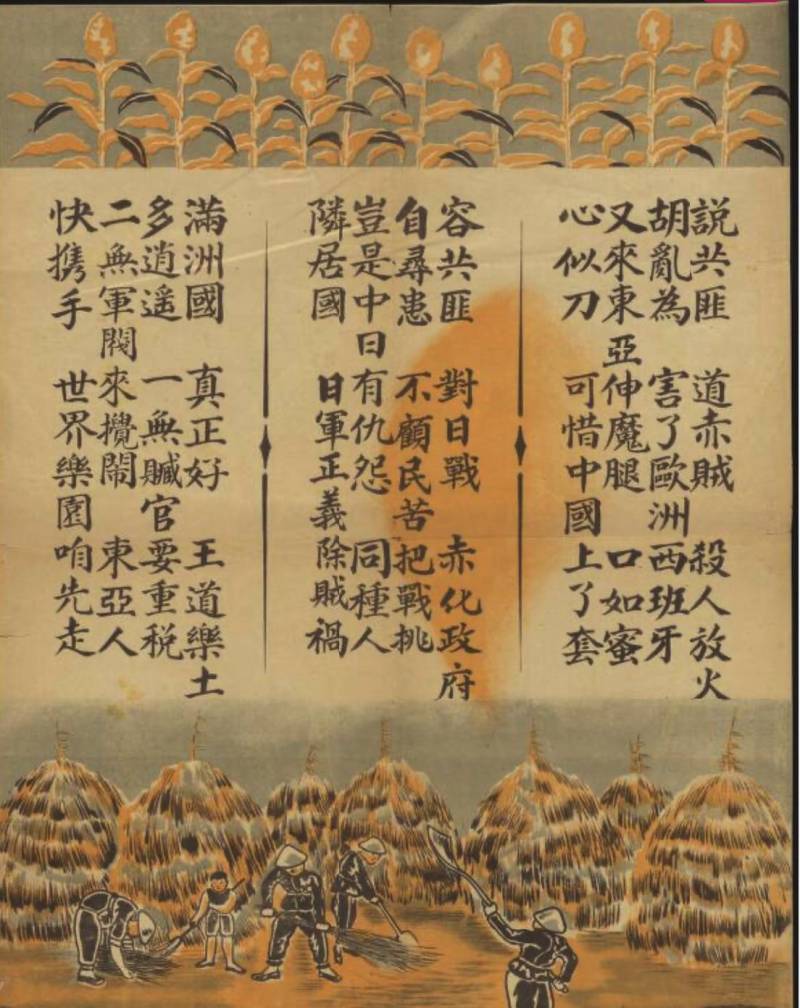 説共匪 道赤賊 殺人放火
胡亂為 害了歐洲西班牙
又來東亞伸魔腿 口如蜜
心似刀 可惜中國上了套
容共匪 對日戰 赤化政府
自尋患 不顧民苦把戰挑
豈是中日有仇怨 同種人
隣居國 日軍正義除賊禍
滿洲國 真正好 王道樂土
多逍遥 一無贓官要重税
二無軍閥來攪鬧 東亞人
快携手 世界樂園咱先走